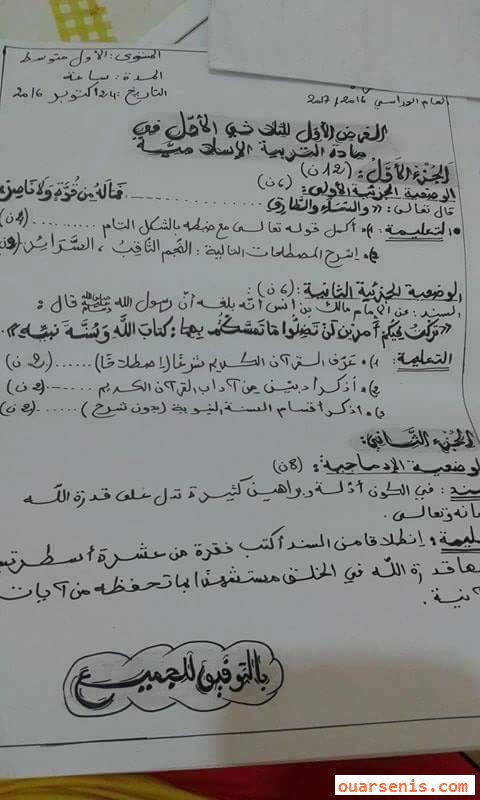 المستوى: الأول متوسط
المدة: ساعة
العام الدراسي 2016/2017
التاريخ: 24 أكتوبر 2016
الفرض الأول للثلاثي الأول في
مادة التربية الإسلامية
الجزء الأول: (12ن)
الوضعية الجزئية الأولى: (6ن)
قال تعالى: «والسماء والطارق ............ فماله من قوة ولا ناصر»
التعليمة: 1) أكمل قوله تعالى مع ضبطه بالشكل التام ..........(4ن)
2) إشرح المصطلحات التالية: النجم الثاقب، السرائر (2ن)
الوضعية الجزئية الثانية: (6ن):
السند: عن الإمام مالك بن أنس أنه بلغه أن رسول الله ﷺ قال:
«تركت فيكم أمرين لن تضلوا ما تمسكتم بهما: كتاب الله وسنة نبيه».
التعليمة: 1) عرف القرآن الكريم شرعا (إصطلاحا) ......(2ن)
2) أذكر أدبين من آداب القرآن الكريم ..........(2ن)
3) اذكر أقسام السنة النبوية (بدون شرح) ......(2ن)
الجزء الثاني:
الوضعية الإدماجية: (8ن)
السند: في الكون أدلة وبراهين كثيرة تدل على قدرة الله
سبحانه وتعالى.
التعليمة: إنطلاقا من السند أكتب فقرة من عشرة أسطر تبين
فيها قدرة الله في الخلق مستشهدا بما تحفظه من آيات
قرآنية.
بالتوفيق للجميع
ouarsenis.com